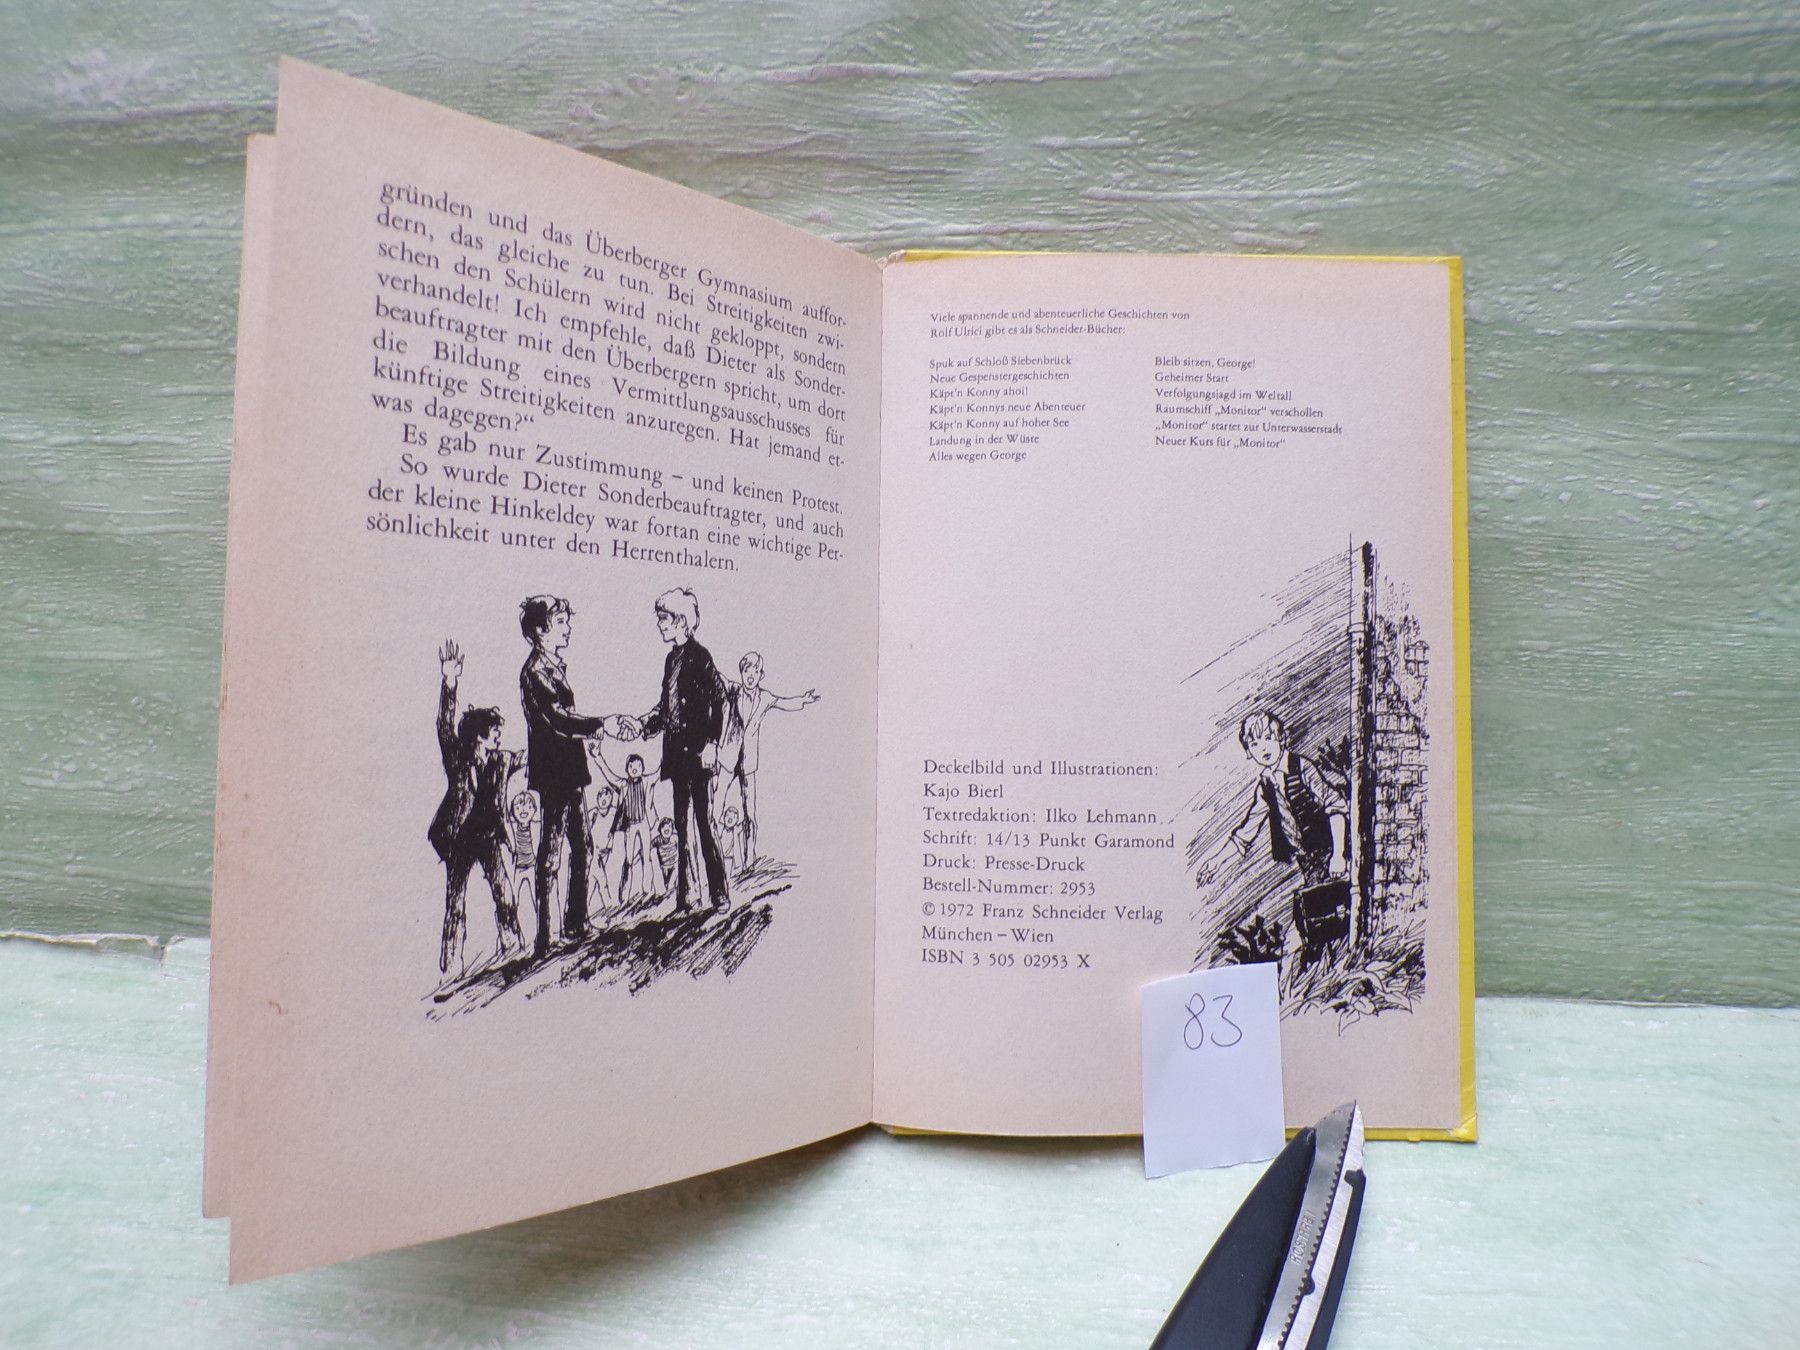 gründen und das Überberger Gymnasium auffor-
dern, das gleiche zu tun. Bei Streitigkeiten zwi-
schen den Schülern wird nicht gekloppt, sondern
verhandelt! Ich empfehle, daß Dieter als Sonder-
beauftragter mit den Überbergern spricht, um dort
die Bildung eines Vermittlungsausschusses für
künftige Streitigkeiten anzuregen. Hat jemand et-
was dagegen?“
Es gab nur Zustimmung – und keinen Protest.
So wurde Dieter Sonderbeauftragter, und auch
der kleine Hinkeldey war fortan eine wichtige Per-
sönlichkeit unter den Herrenthalern.
Viele spannende und abenteuerliche Geschichten von
Rolf Ulrici gibt es als Schneider-Bücher:
Spuk auf Schloß Siebenbrück
Neue Gespenstergeschichten
Käpt'n Konny ahoi!
Käpt'n Konnys neue Abenteuer
Käpt'n Konny auf hoher See
Landung in der Wüste
Alles wegen George
Bleib sitzen, George!
Geheimer Start
Verfolgungsjagd im Weltall
Raumschiff „Monitor“ verschollen
„Monitor“ startet zur Unterwasserstadt
Neuer Kurs für „Monitor“
Deckelbild und Illustrationen:
Kajo Bierl
Textredaktion: Ilko Lehmann
Schrift: 14/13 Punkt Garamond
Druck: Presse-Druck
Bestell-Nummer: 2953
© 1972 Franz Schneider Verlag
München – Wien
ISBN 3 505 02953 X
83
ROSTFREI